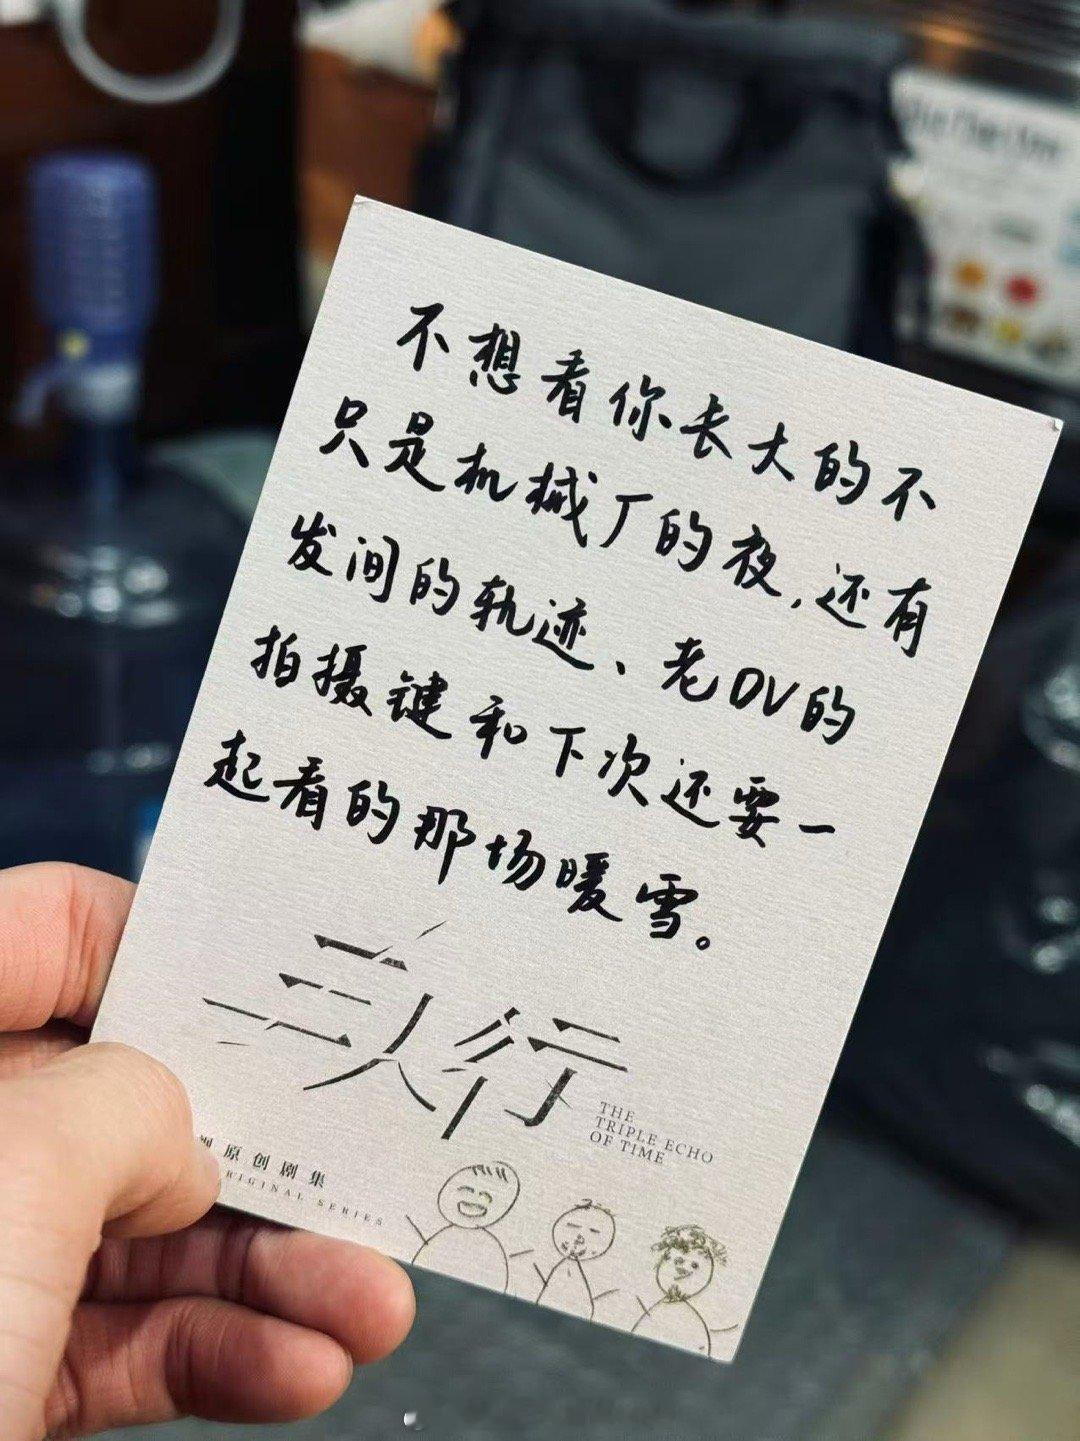 不想看你长大的不
只是机械厂的夜,还有
发间的轨迹、老DV的
拍摄键和下次还要一
起看的那场暖雪。
三人行
THE
TRIPLE ECHO
OF TIME
原创剧集
RIGINAL SERIES